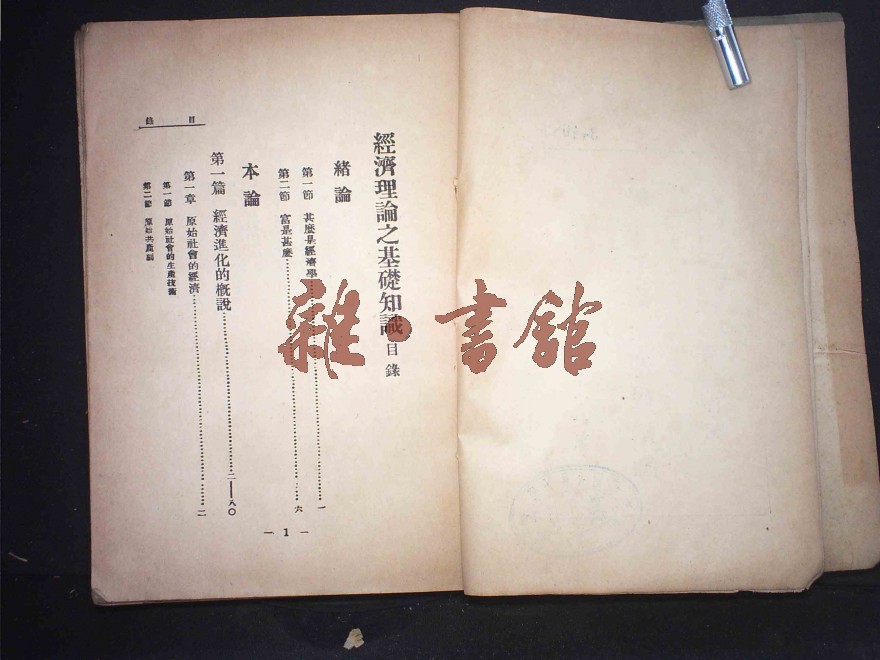 經濟理論之基礎知識目錄
緒論
第一節 甚麼是經濟學……一
第二節 富是甚麼……六
本論
第一篇 經濟進化的概說……二—八〇
第一章 原始社會的經濟……二
第一節 原始社會的生產技術
第二節 原始共產制
目錄
— 1 —
雜·書館